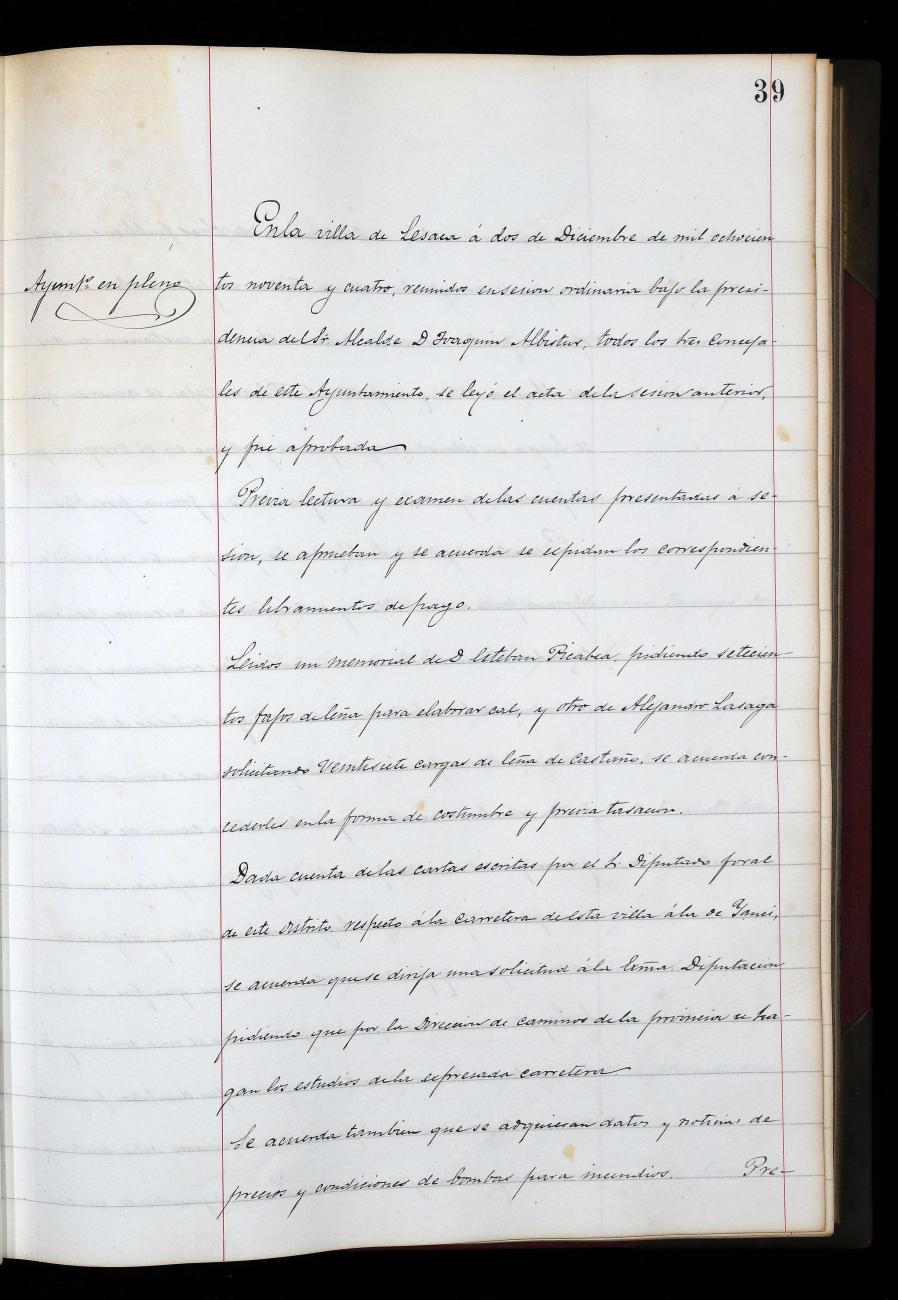 39
En la villa de Lesaca á dos de Diciembre de mil ochocien
Ayunto. en pleno
tos noventa y cuatro, reunidos en sesion ordinaria bajo la presi-
dencia del Sr. Alcalde D Joaquin Albistur, todos los tres conceja-
les de este Ayuntamiento, se leyó el acta de la sesion anterior,
y fue aprobada
Previa lectura y examen de las cuentas presentadas á se-
sion, se aprueban y se acuerda se espidan los correspondien-
tes libramientos de pago.
Leidos un memorial de D Esteban Picabea, pidiendo setecien-
tos fajos de leña para elaborar cal, y otro de Alejandro Lasaga
solicitando veintisiete cargas de leña de castaño, se acuerda con-
cederles en la forma de costumbre y previa tasacion.
Dada cuenta de las cartas escritas por el Sr. Diputado foral
de este distrito respecto á la carretera de esta villa á la de Yanci,
se acuerda que se dirija una solicitud á la Exma. Diputacion
pidiendo que por la Direccion de caminos de la provincia se ha-
gan los estudios de la expresada carretera
Se acuerda tambien que se adquieran datos y noticias de
precios y condiciones de bombas para incendios. Pre-